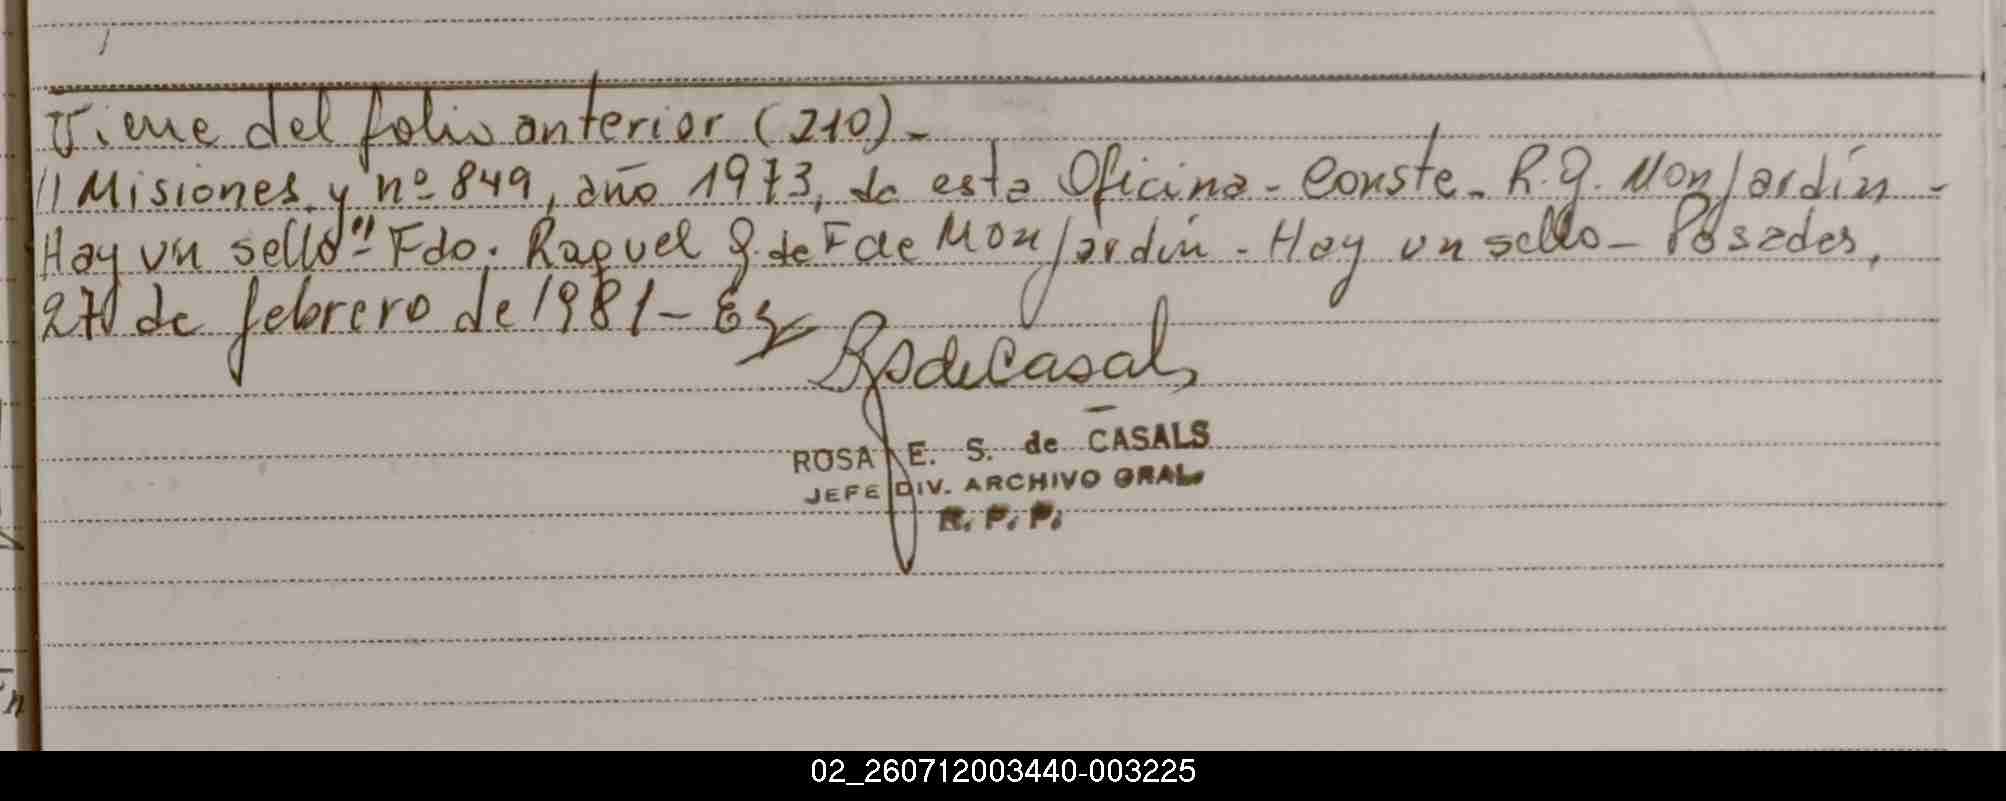 Viene del folio anterior (210).-
// Misiones y nº 849, año 1973, de esta Oficina - Conste. R.G. Monjardín -
Hay un sello" - Fdo. Raquel G. de F de Monjardín - Hay un sello - Posadas,
27 de febrero de 1981 -
RSdeCasals
ROSA E. S. de CASALS
JEFE DIV. ARCHIVO GRAL.
R. P. P.
02_260712003440-003225